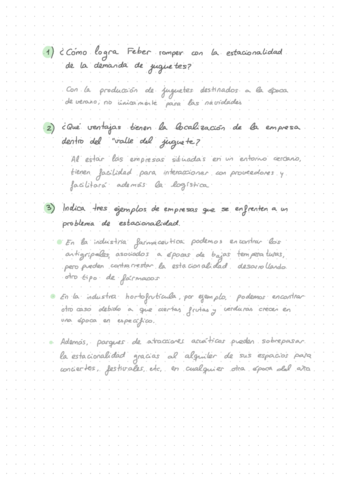 1) ¿Cómo logra Feber romper con la estacionalidad
de la demanda de juguetes?
Con la producción de juguetes destinados a la época
de verano, no únicamente para las navidades
2) ¿Qué ventajas tienen la localización de la empresa
dentro del "valle del juguete?
Al estar las empresas situadas en un entorno cercano,
tienen facilidad para interaccionar con proveedores y
facilitará además la logística
3) Indica tres ejemplos de empresas que se enfrenten a un
problema de estacionalidad
En la industria farmaceutica podemos encontrar los
antigripales, asociados a épocas de bajas temperaturas,
pero pueden contrarrestar la estacionalidad desarrollando
otro tipo de fármacos
En la industria hortofrutícula, por ejemplo, podemos encontrar
otro caso debido a que ciertas frutas y verduras crecen en
una época en específico.
Además, parques de atracciones acuáticas pueden sobrepasar
la estacionalidad gracias al alquiler de sus espacios para
conciertos, festivales, etc, en cualquier otra época del año